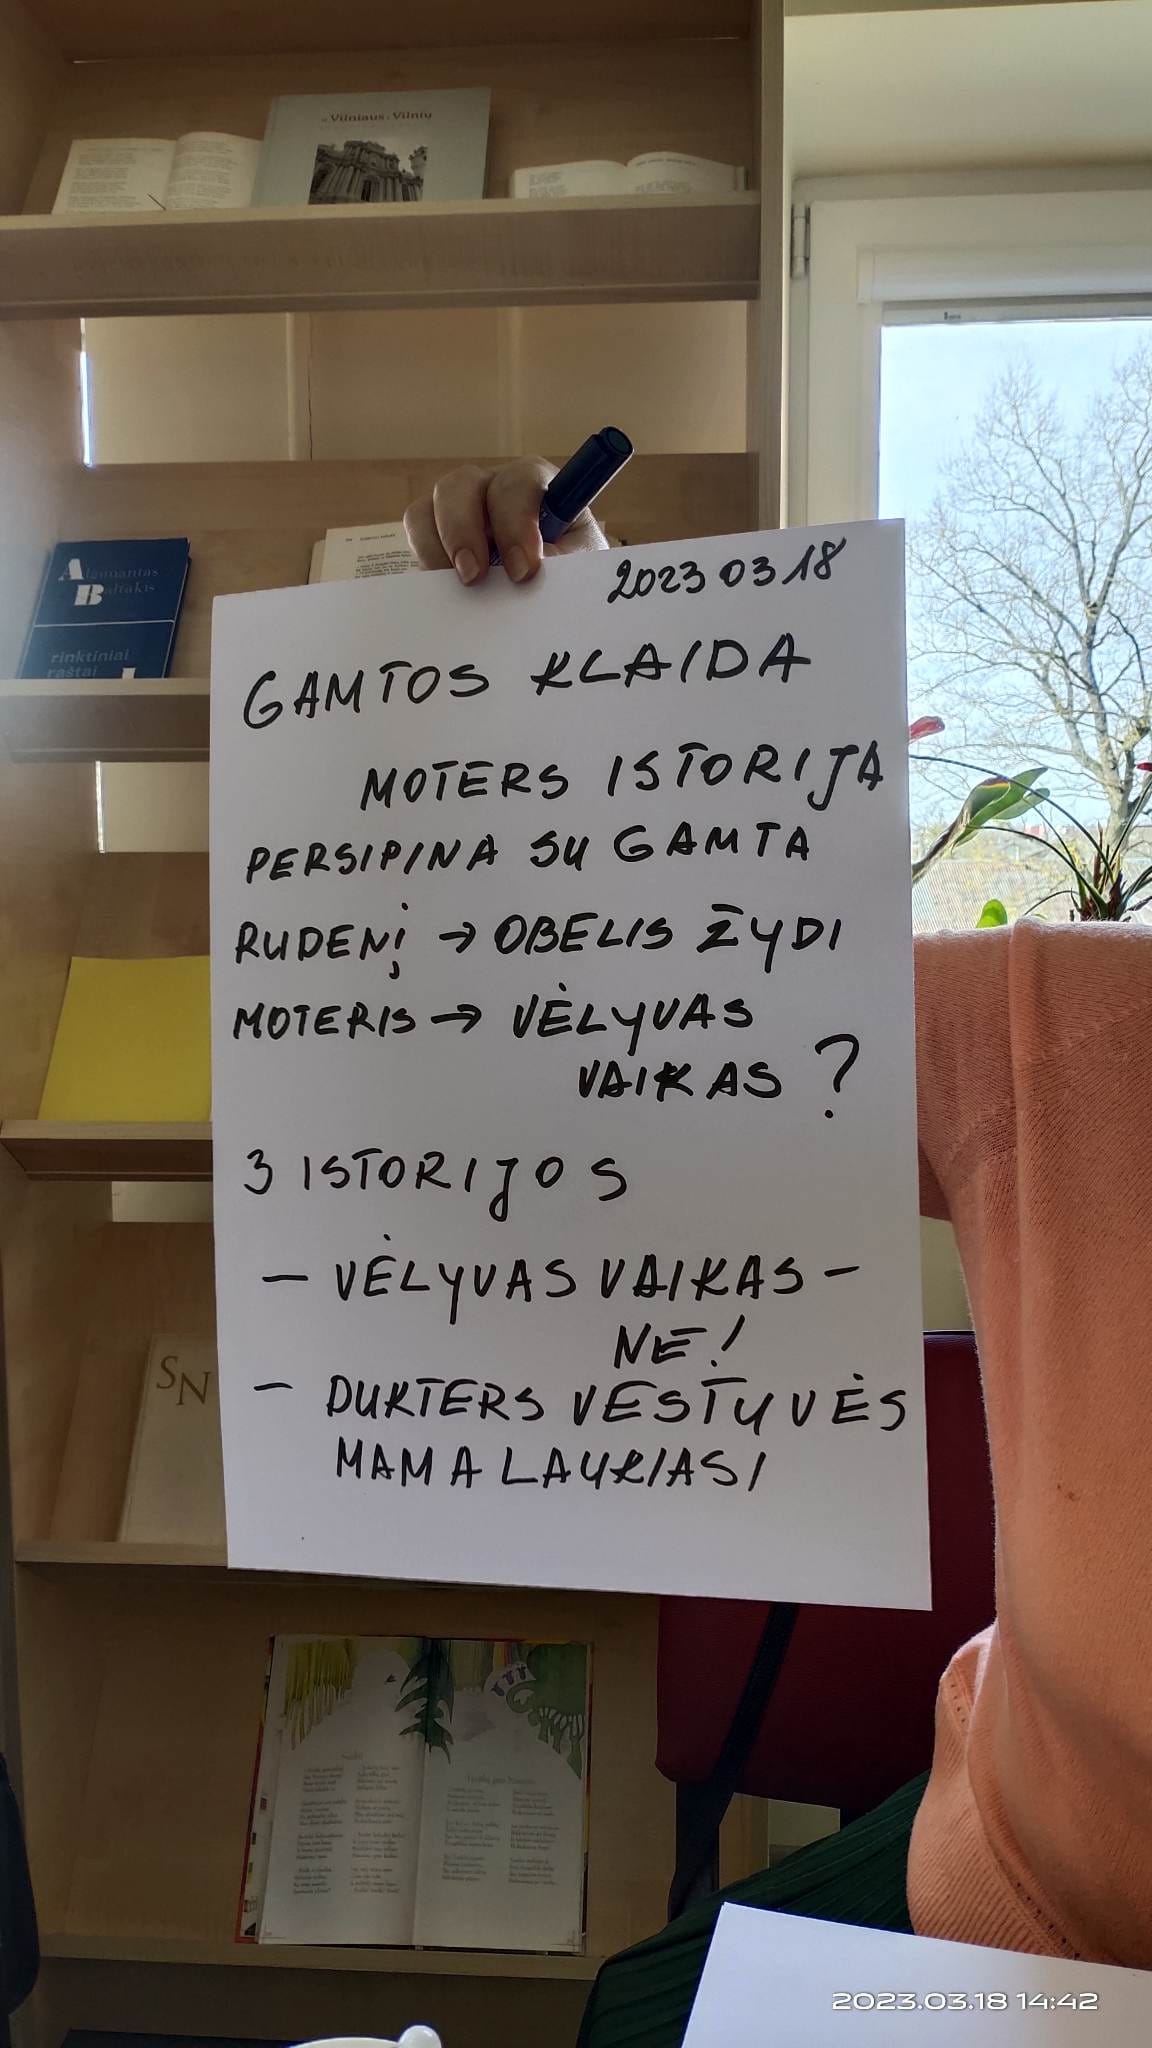 „Vilniaus” Vilnių
Algimantas
Baltakis
rinktiniai
raštai
2023 03 18
GAMTOS KLAIDA
MOTERS ISTORIJA
PERSIPINA SU GAMTA
RUDENĮ → OBELIS ŽYDI
MOTERIS → VĖLYVAS
VAIKAS ?
3 ISTORIJOS
– VĖLYVAS VAIKAS –
NE!
– DUKTERS VESTUVĖS
MAMA LAUKIASI
SN
2023.03.18 14:42